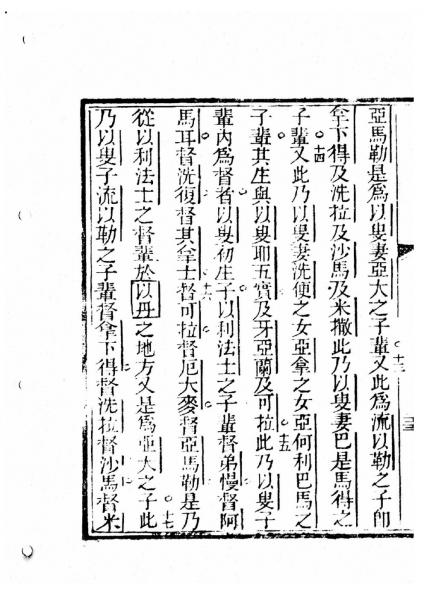 亞馬勒是爲以叟妻亞大之子輩十三又此爲流以勒之子卽
拿下得及洗拉及沙馬及米撒此乃以叟妻巴是馬得之
子輩十四又此乃以叟妻洗便之女亞拿之女亞何利巴馬之
子輩其生與以叟耶五實及牙亞蘭及可拉十五此乃以叟子
輩內爲督者以叟初生子以利法士之子輩督弟慢督阿
馬耳督洗復督其拿士十六督可拉督厄大麥督亞馬勒是乃
從以利法士之督輩於以丹之地方又是爲亞大之子十七此
乃以叟子流以勒之子輩督拿下得督洗拉督沙馬督米